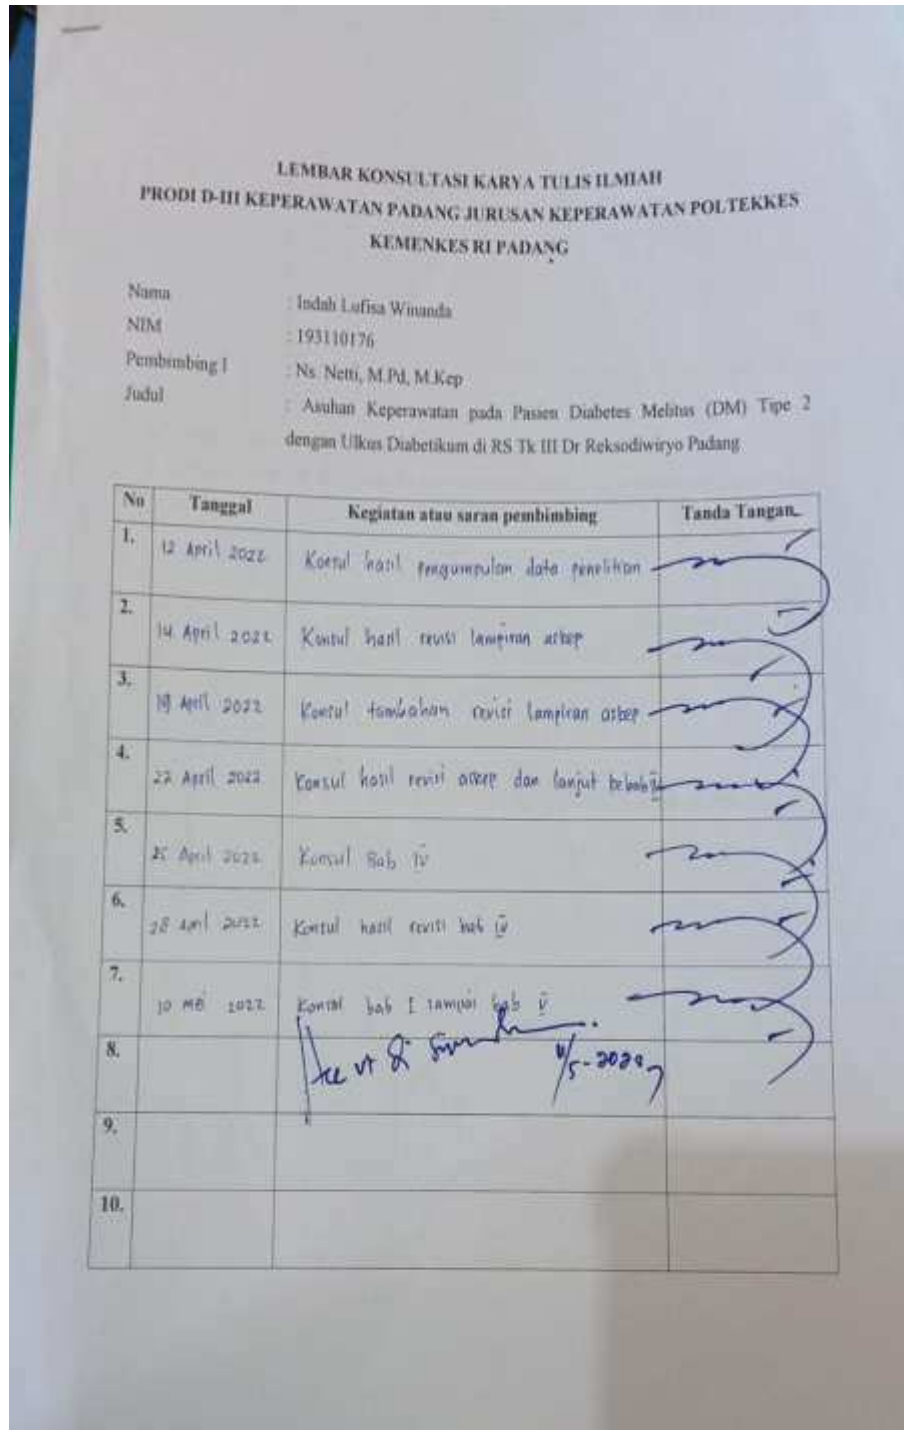 LEMBAR KONSULTASI KARYA TULIS ILMIAH
PRODI D-III KEPERAWATAN PADANG JURUSAN KEPERAWATAN POLTEKKES
KEMENKES RI PADANG
Nama : Indah Lufisa Winanda
NIM : 193110176
Pembimbing I : Ns. Netti, M.Pd, M.Kep
Judul : Asuhan Keperawatan pada Pasien Diabetes Melitus (DM) Tipe 2
dengan Ulkus Diabetikum di RS Tk III Dr Reksodiwiryo Padang
No Tanggal Kegiatan atau saran pembimbing Tanda Tangan
1. 12 April 2022 Konsul hasil pengumpulan data penelitian
2. 14 April 2022 Konsul hasil revisi lampiran askep
3. 19 April 2022 Konsul tambahan revisi lampiran askep
4. 22 April 2022 Konsul hasil revisi askep dan lanjut ke bab IV
5. 25 April 2022 Konsul Bab IV
6. 28 April 2022 Konsul hasil revisi bab IV
7. 10 Mei 2022 Konsul bab I sampai bab V
8. Acc
9.
10.